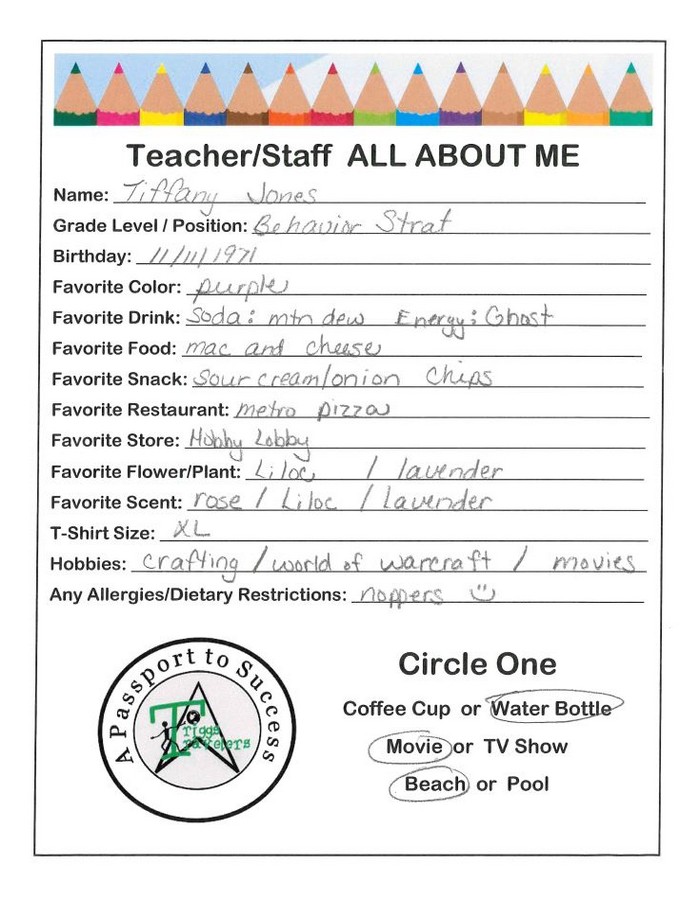 Teacher/Staff ALL ABOUT ME
Name: Tiffany Jones
Grade Level / Position: Behavior Strat
Birthday: 11/11/1971
Favorite Color: purple
Favorite Drink: Soda: mtn dew Energy: Ghost
Favorite Food: mac and cheese
Favorite Snack: Sour cream/onion chips
Favorite Restaurant: metro pizza
Favorite Store: Hobby Lobby
Favorite Flower/Plant: Liloc / lavender
Favorite Scent: rose / Liloc / Lavender
T-Shirt Size: XL
Hobbies: crafting / world of warcraft / movies
Any Allergies/Dietary Restrictions: noppers
A Passport to Success
Triggs
Travelers
Circle One
Coffee Cup or Water Bottle
Movie or TV Show
Beach or Pool